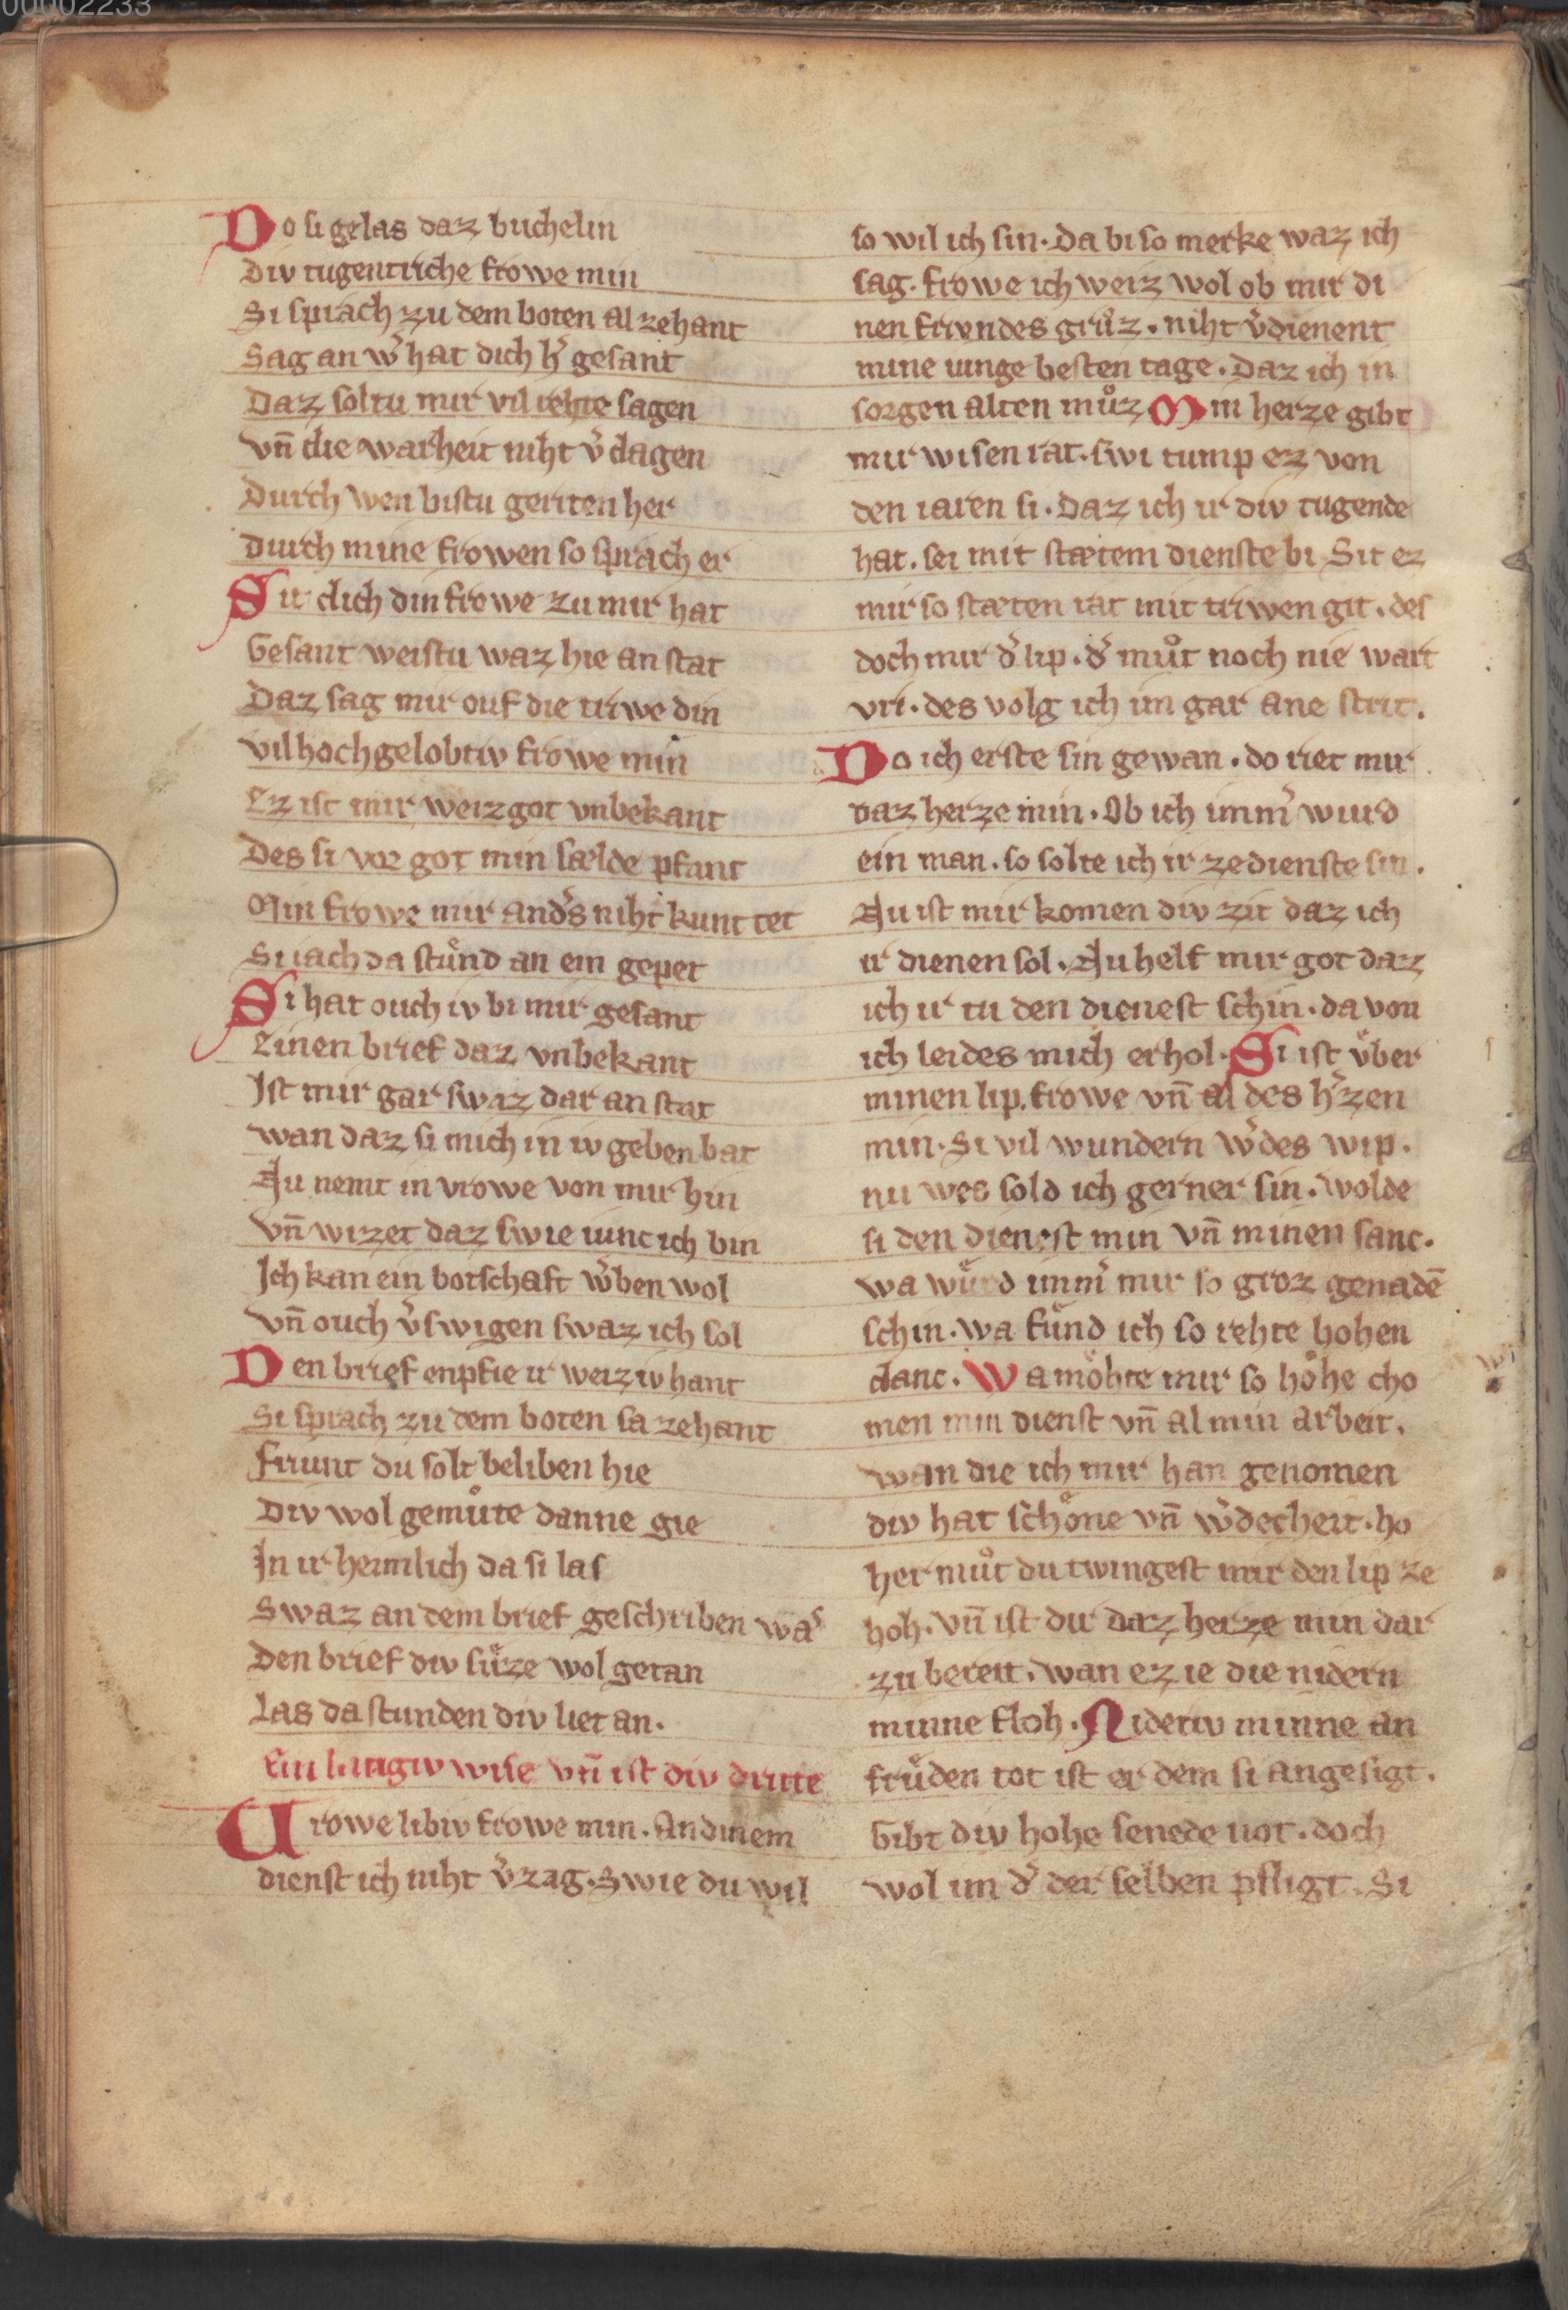 00002233
Do si gelas daz buchelin
Div tugentriche frowe min
Si sprach zu dem boten al zehant
Sag an w̾ hat dich h̾ gesant
Daz soltu mir vil rehte sagen
vn̄ die warheit niht v̾dagen
Durch wen bistu geriten her
Durch mine frowen so sprach er
Sit dich din frowe zu mir hat
Gesant weistu waz hie an stat
Daz sag mir ouf die triwe din
vil hochgelobtiv frowe min
Ez ist mir weizgot vnbekant
Des si vor got min sælde pfant
Min frowe mir and̾s niht kunt tet
Si iach da stůnd an ein gepet
Si hat ouch iv bi mir gesant
Einen brief daz vnbekant
Ist mir gar swaz dar an stat
wan daz si mich in iv geben bat
Nu nemt in vrowe von mir hin
vn̄ wizzet daz swie iunc ich bin
Ich kan ein botschaft w̾ben wol
vn̄ ouch v̾swigen swaz ich sol
Den brief enpfie ir weiziv hant
Si sprach zu dem boten sa zehant
friunt du solt beliben hie
Div wol gemůte danne gie
In ir heimlich da si las
Swaz an dem brief geschriben was
Den brief div sůze wol getan
Las da stunden div liet an.
Ein langiv wise vn̄ ist div dritte
Vrowe libiv frowe min. An dinem
dienst ich niht v̾zag. Swie du wil
so wil ich sin. da bi so merke waz ich
sag. frowe ich weiz wol ob mir di
nen friundes grůz. niht v̾dienent
mine iunge besten tage. Daz ich in
sorgen alten můz Min herze gibt
mir wisen rat. swi tump ez von
den iaren si. Daz ich ir div tugende
hat. sei mit stætem dienste bi Sit ez
mir so stæten rat mit triwen git. des
doch mir d̾ lip. d̾ můt noch nie wart
vri. des volg ich im gar ane strit.
Do ich erste sin gewan. do riet mir
daz herze min. Ob ich imm̾ wurd
ein man. so solte ich ir ze dienste sin.
Nu ist mir komen div zit daz ich
ir dienen sol. Nu helf mir got daz
ich ir tu den dienest schin. da von
ich leides mich erhol. Si ist ůber
minen lip. frowe vn̄ al des h̾zen
min. Si vil wundern w̾des wip.
nu wes sold ich gerner sin. wolde
si den dienest min vn̄ minen sanc.
wa wůrd imm̾ mir so groz genadē
schin. wa fůnd ich so rehte hohen
danc. Wa mohte mir so hohe cho
men min dienst vn̄ al min arbeit.
wan die ich mir han genomen
div hat schone vn̄ w̾decheit. ho
her můt du twingest mir den lip ze
hoh. vn̄ ist dir daz herze min dar
zu bereit. wan ez ie die nidern
minne floh. Nideriv minne an
frůden tot ist er dem si angesigt.
Gibt div hohe senede not. doch
wol im d̾ der selben pfligt. Si